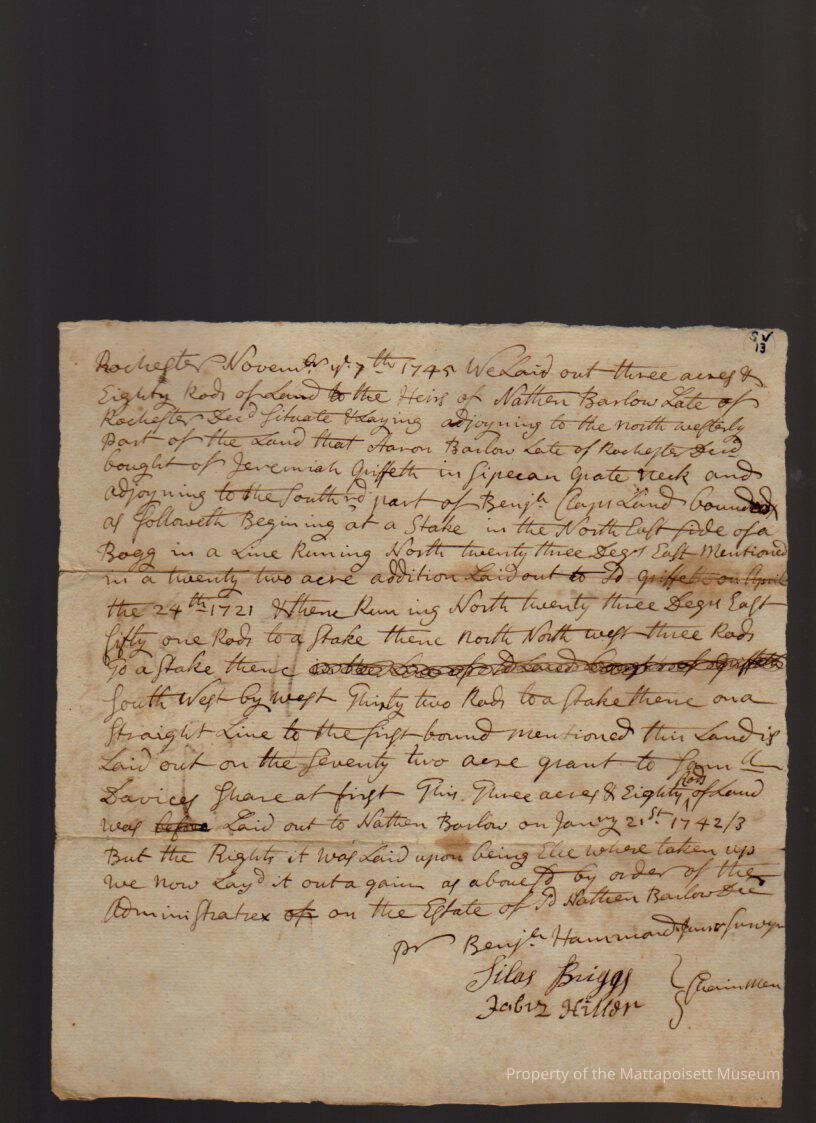 SV
13
Rochester Novemr ye 7th 1745 We Laid out three acres &
Eighty Rods of Land to the Heirs of Nathen Barlow Late of
Rochester Decd Situate & Laying adjoyning to the north westerly
Part of the Land that Aaron Barlow Late of Rochester Decd
bought of Jeremiah Griffeth in Sipecan Grate neck and
adjoyning to the Southrd part of Benja Claps Land bounded
as followeth Begining at a Stake in the North East side of a
Bogg in a Line Runing North twenty three Degs East Mentioned
in a twenty two acre addition Laid out to sd Griffeth on April
the 24th 1721 & thence Runing North twenty three Degrs East
fifty one Rods to a Stake thence North North west three Rods
To a Stake thence
South West by west Thirty two Rods to a stake thence on a
Straight Line to the first bound mentioned this Land is
Laid out on the Seventy two acre grant to Samll
Davices Share at first This Three acres & Eighty Rods of Land
was before Laid out to Nathen Barlow on Janry 21st 1742/3
But the Rights it was Laid upon being Else where taken up
we now Layd it out again as abovesd by order of the
Administratrex of on the Estate of sd Nathen Barlow Decd
pr Benja Hammond Junr Survyr
Silas Briggs
Jabez Hiller } Chain Men
Property of the Mattapoisett Museum